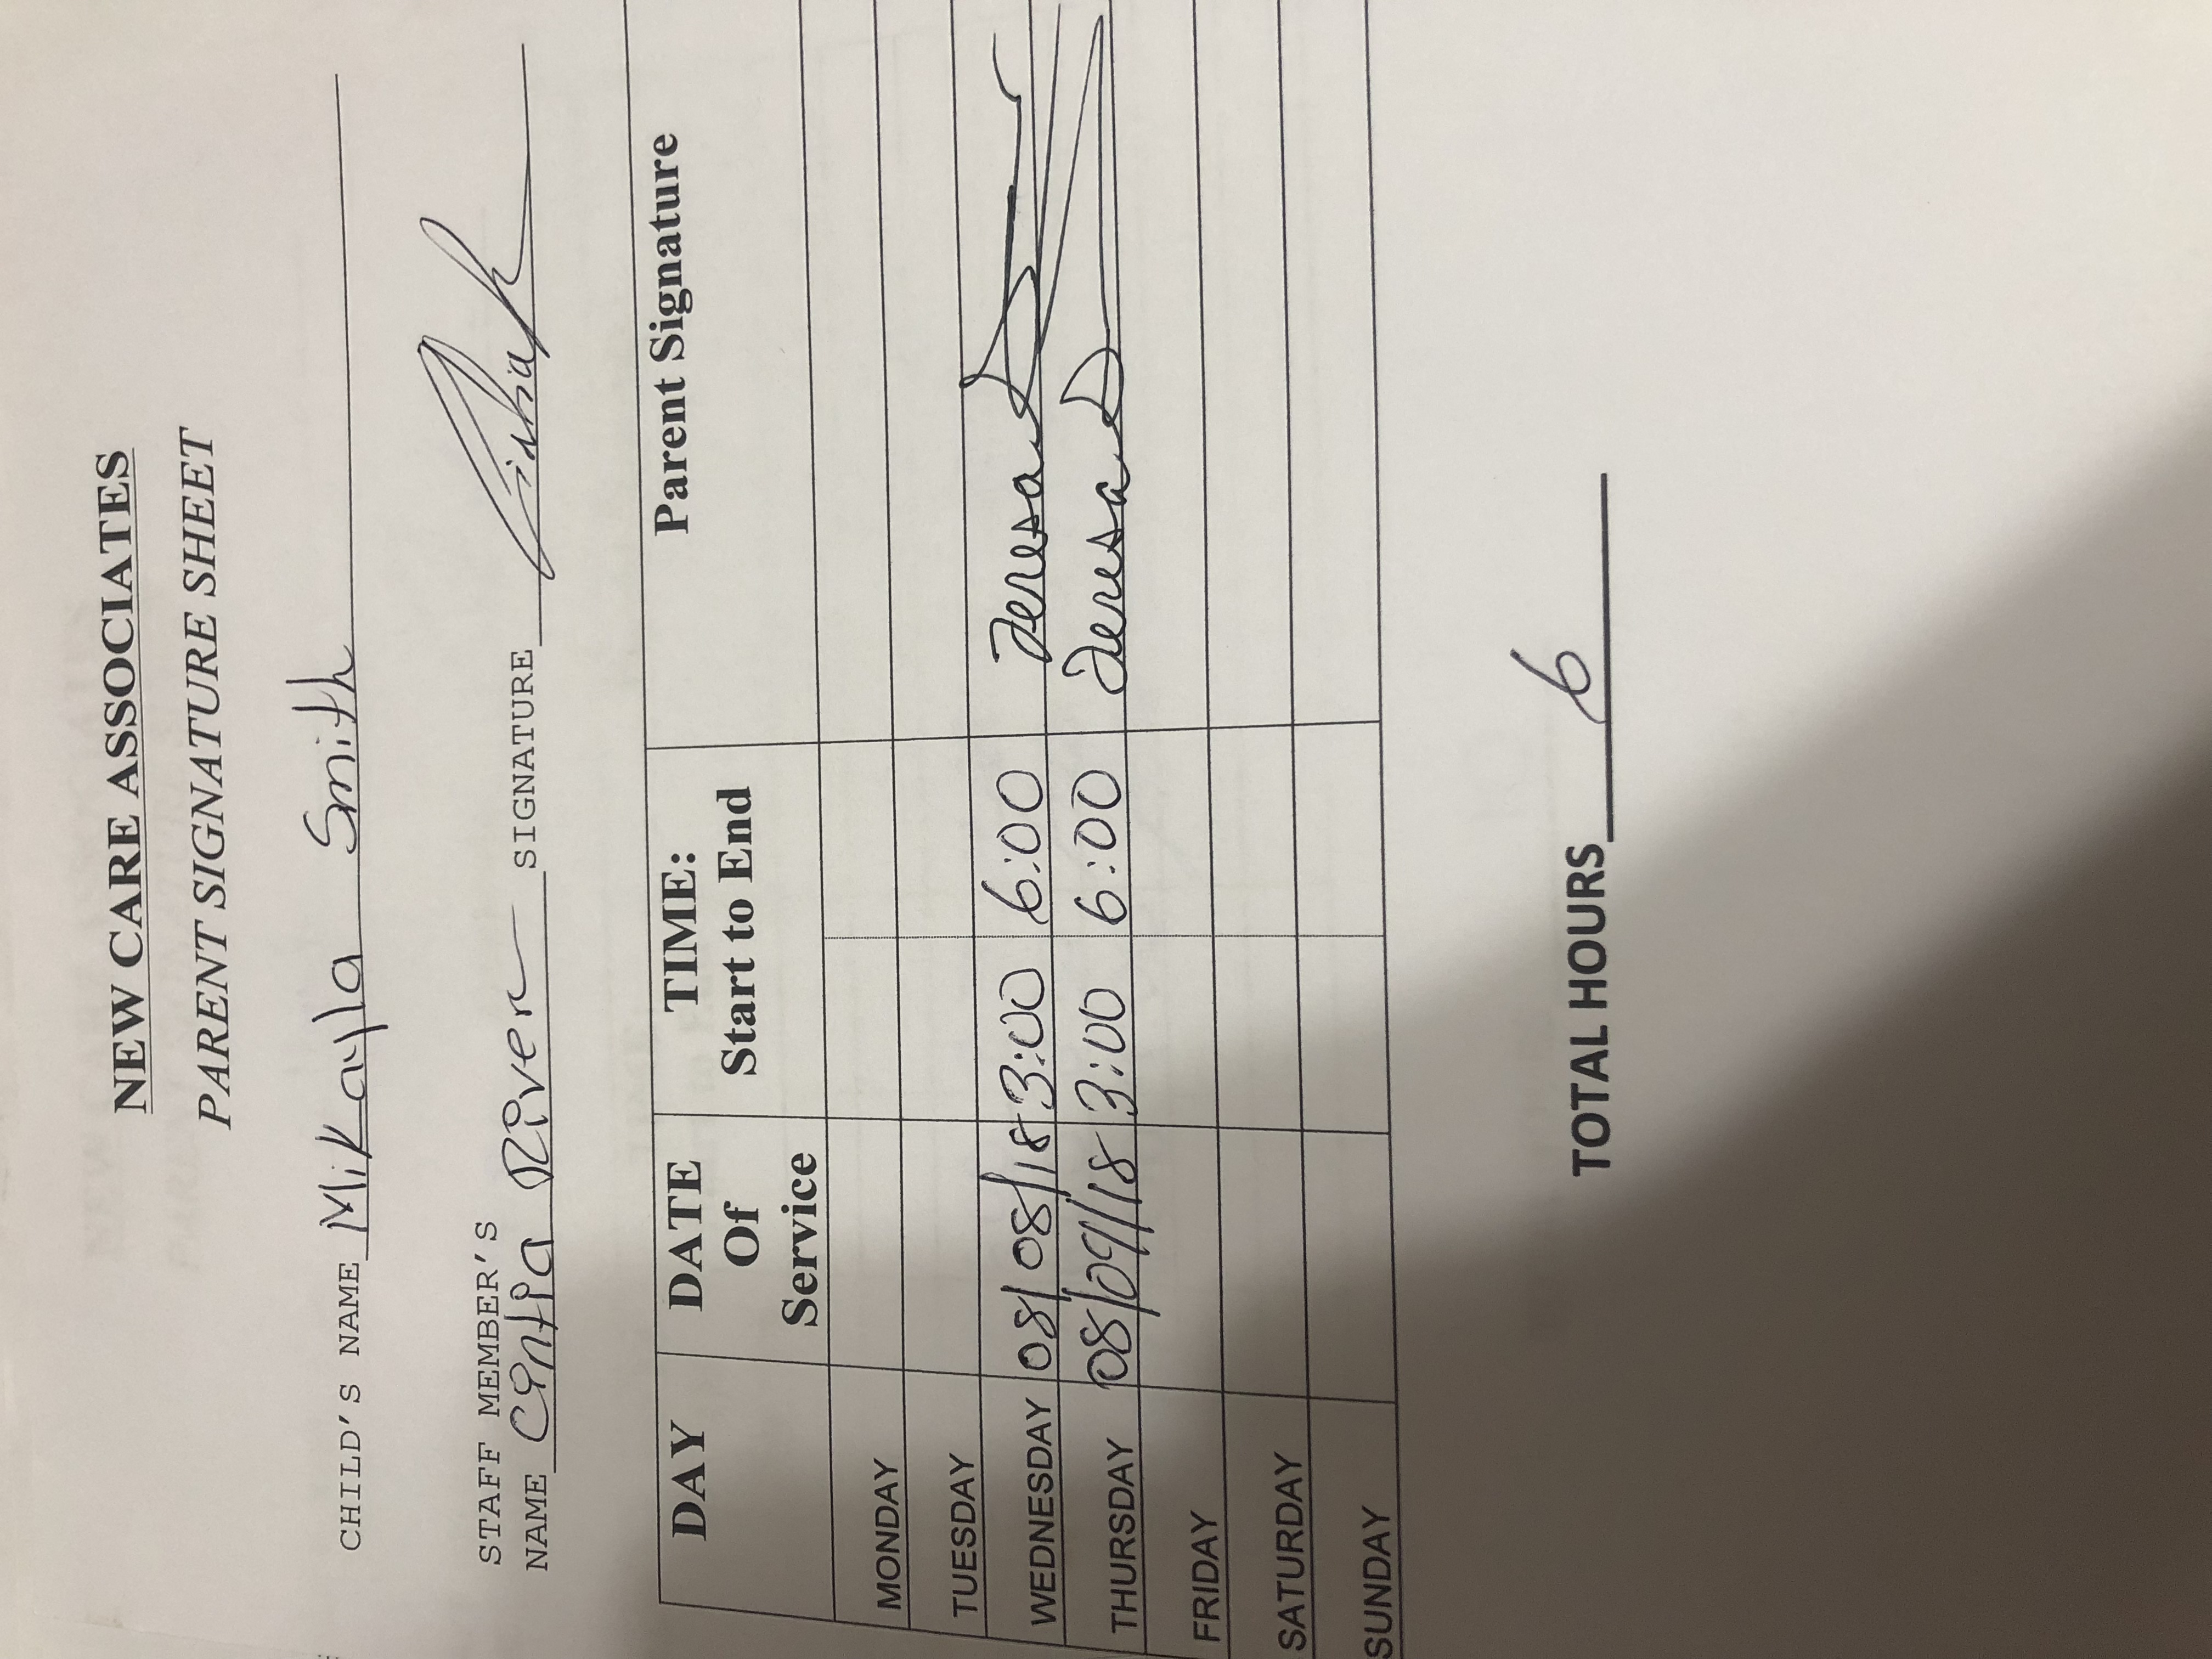 NEW CARE ASSOCIATES
PARENT SIGNATURE SHEET
CHILD'S NAME Mikayla Smith
STAFF MEMBER'S
NAME Cintia River SIGNATURE
DAY DATE Of Service TIME: Start to End Parent Signature
MONDAY
TUESDAY
WEDNESDAY 08/08/18 3:00 6:00 Teresa
THURSDAY 08/09/18 3:00 6:00 Teresa
FRIDAY
SATURDAY
SUNDAY
TOTAL HOURS 6